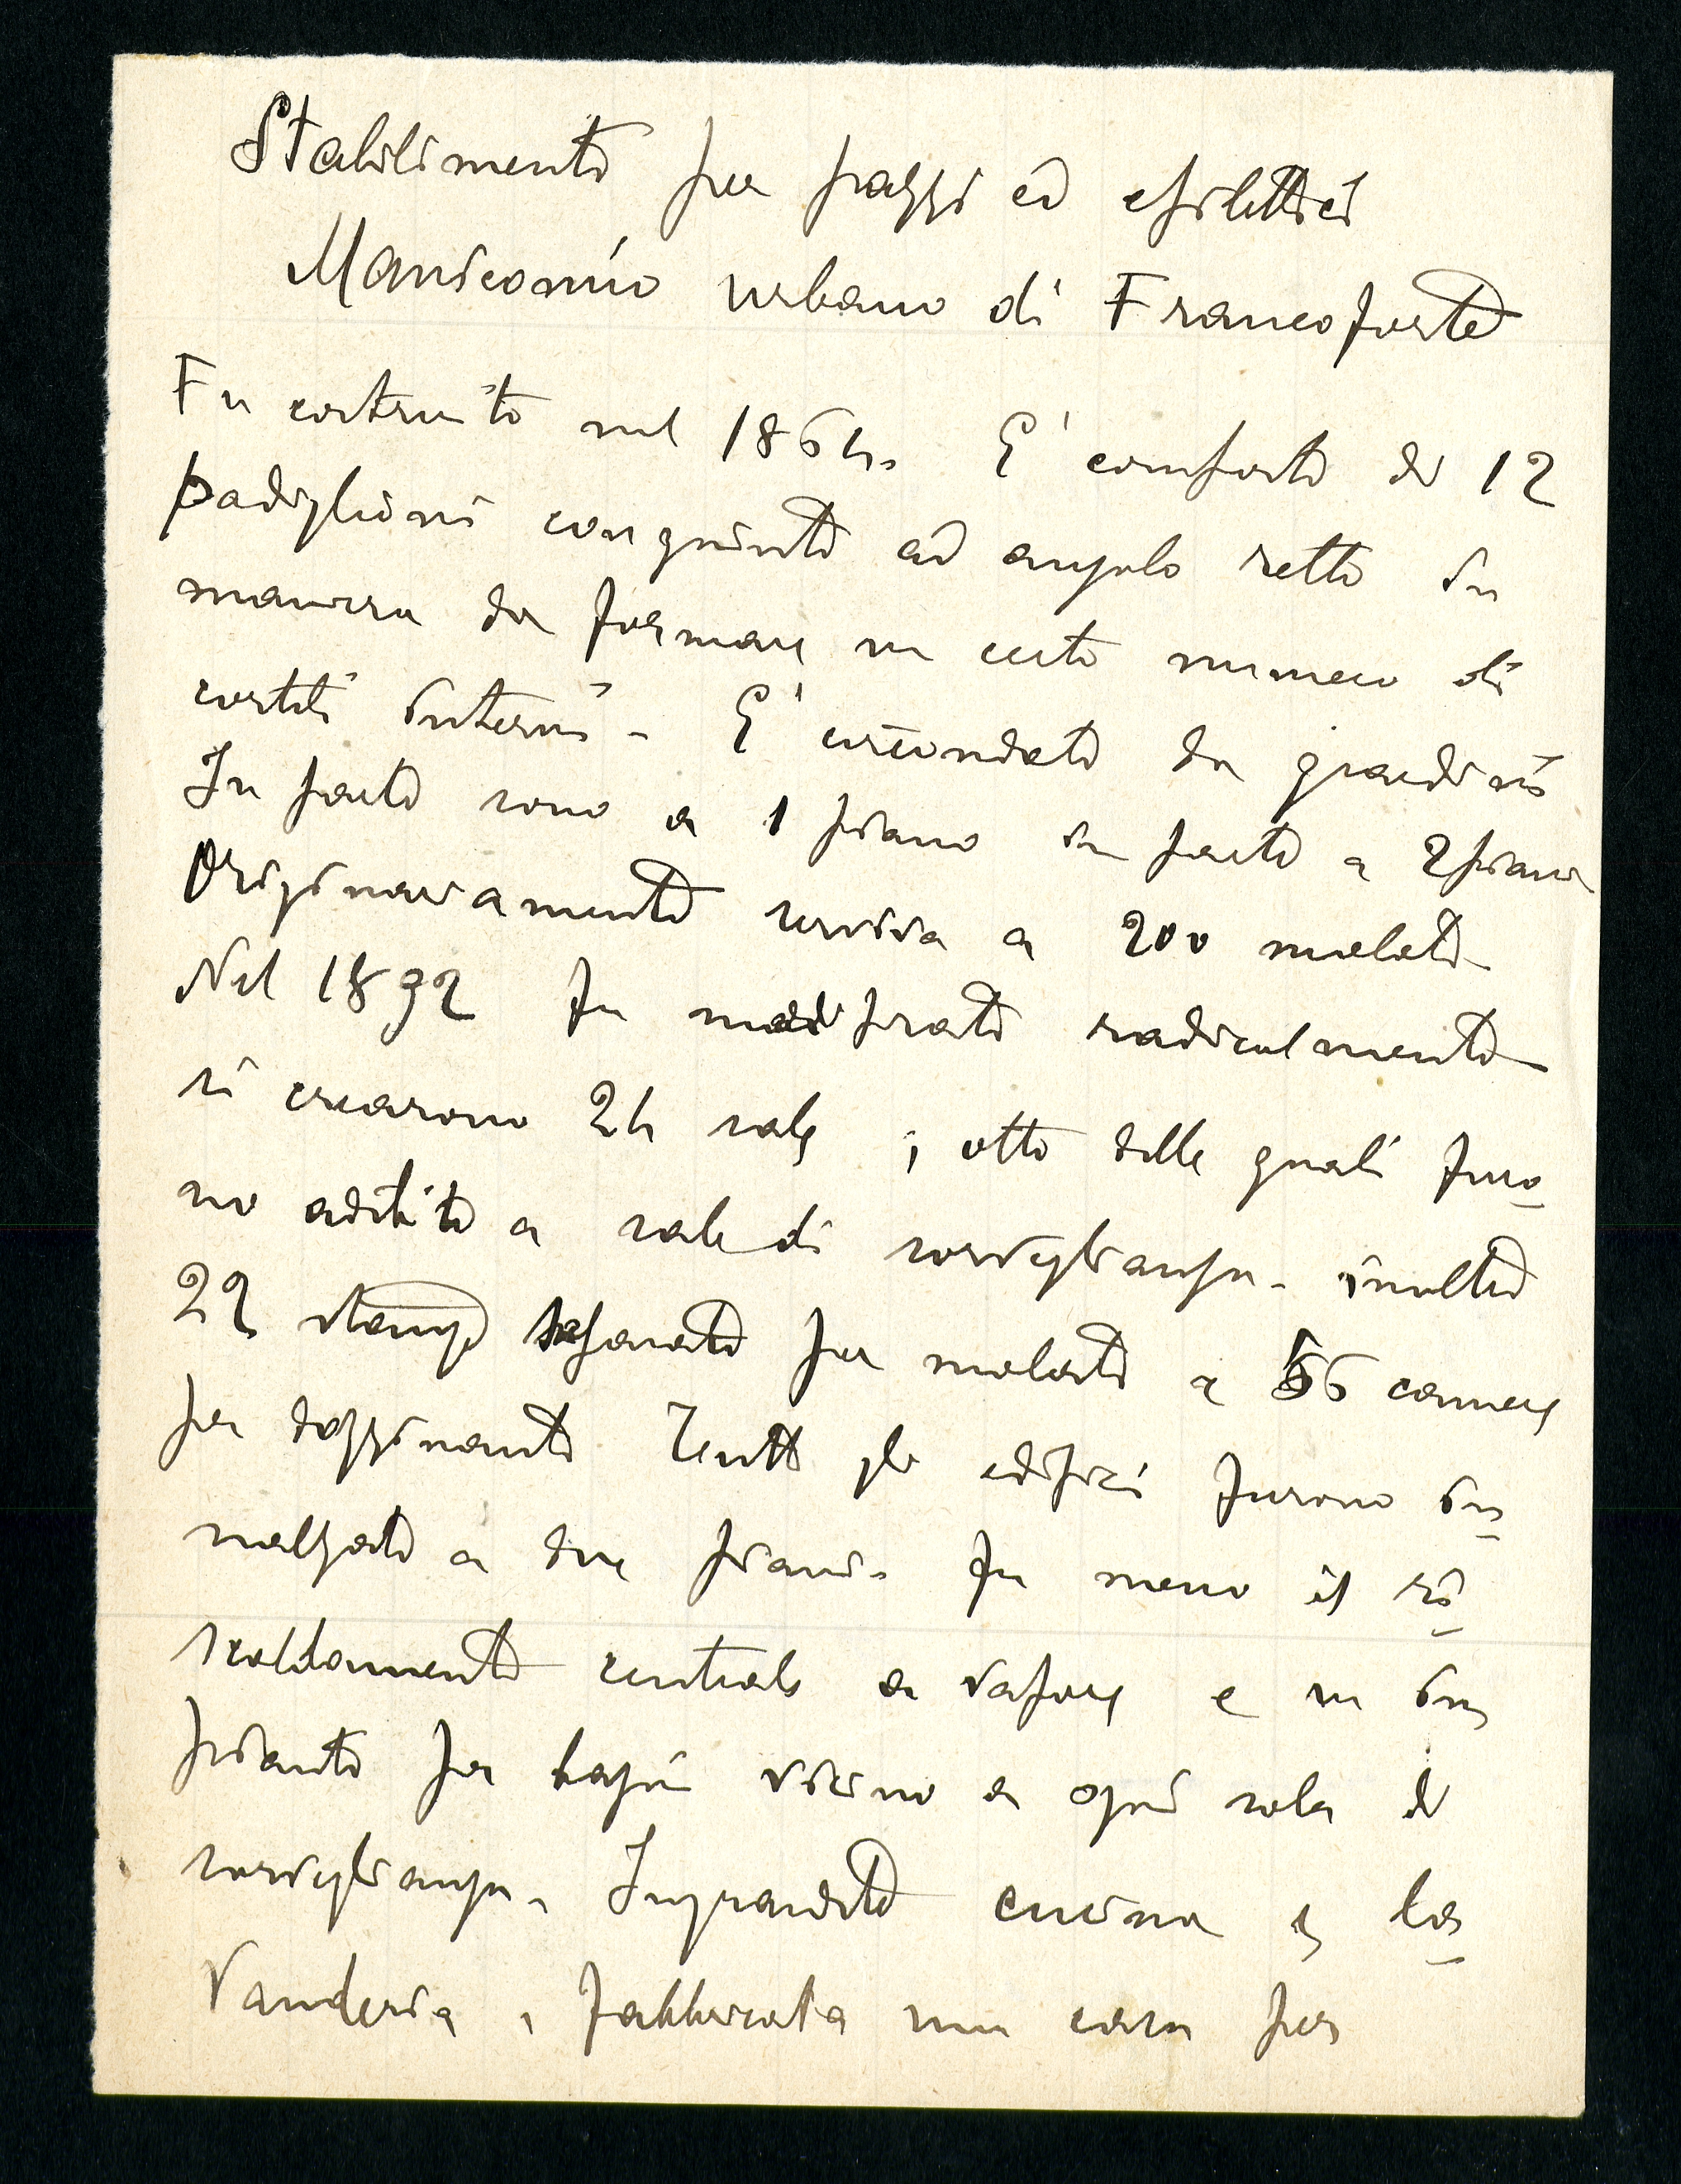 Stabilimento per pazzi ed epilettici
Manicomio urbano di Francoforte
Fu costruito nel 1864. E' composto di 12
padiglioni congiunti ad angolo retto in
maniera da formare un certo numero di
cortili interni - E' circondato da giardini
In parte sono a 1 piano in parte a 2 piani
Originariamente serviva a 200 malati
Nel 1892 fu modificato radicalmente
si crearono 24 sale , otto delle quali furo-
no adibite a sale di sorveglianza - inoltre
22 stanze separate per malati e 56 camere
per dozzinanti Tutti gli edifizi furono in-
nalzati a due piani. Fu messo il ri-
scaldamento centrale a vapore e un im-
pianto per bagni vicino a ogni sala di
sorveglianza. Ingrandite cucina e la-
vanderia , fabbricata una casa per